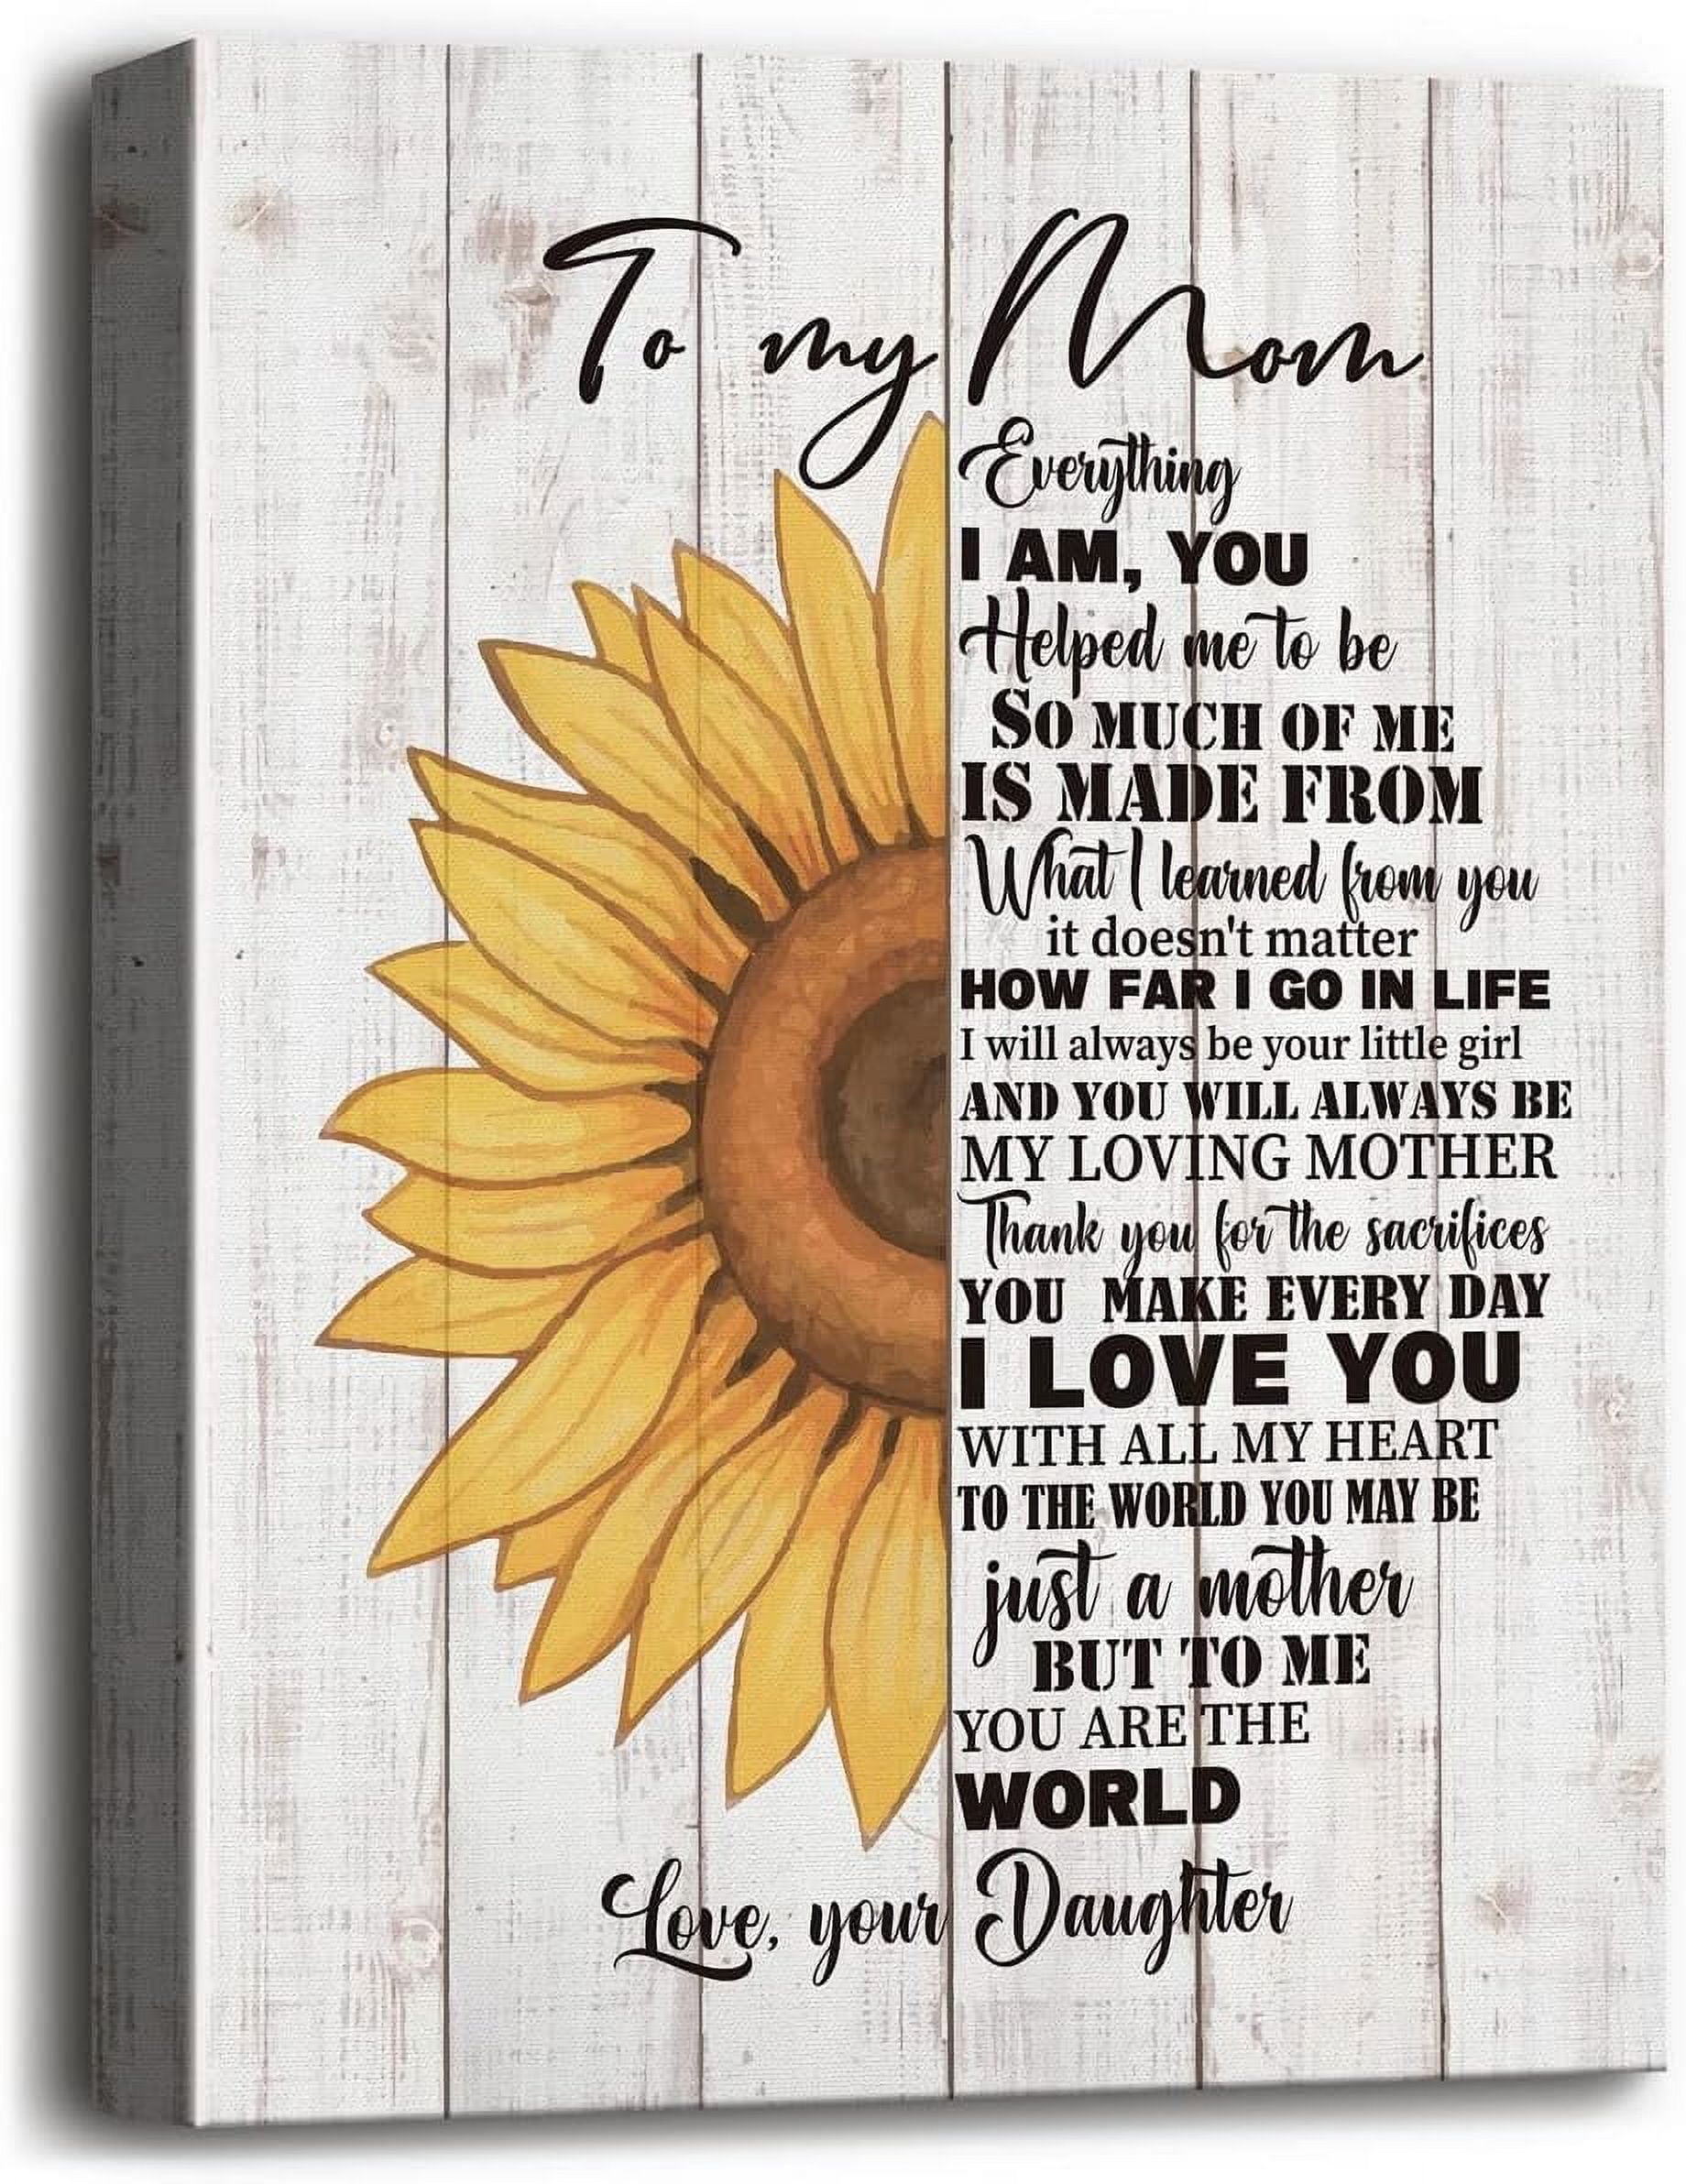 To my Mom
Everything
I AM, YOU
Helped me to be
SO MUCH OF ME
IS MADE FROM
What I learned from you
it doesn't matter
HOW FAR I GO IN LIFE
I will always be your little girl
AND YOU WILL ALWAYS BE
MY LOVING MOTHER
Thank you for the sacrifices
YOU MAKE EVERY DAY
I LOVE YOU
WITH ALL MY HEART
TO THE WORLD YOU MAY BE
just a mother
BUT TO ME
YOU ARE THE
WORLD
Love, your Daughter